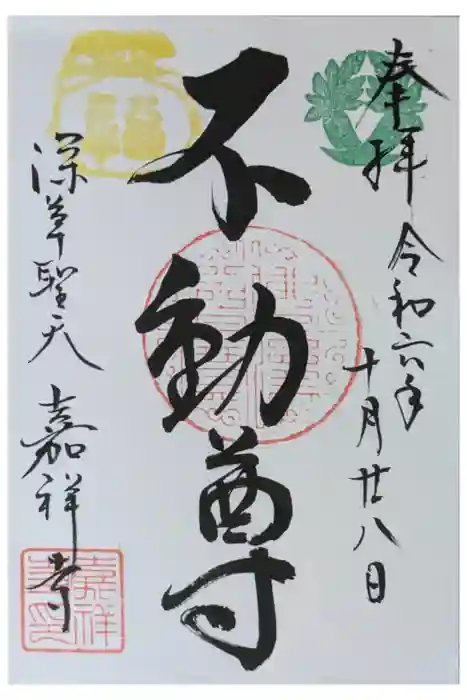 奉拝 令和六年
十月廿八日
不動尊
深草聖天 嘉祥寺
嘉祥
寺印